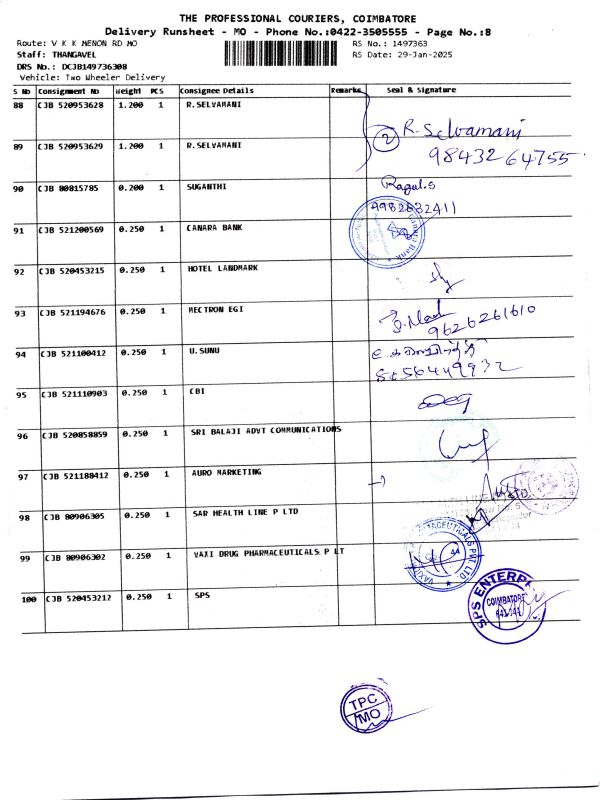 THE PROFESSIONAL COURIERS, COIMBATORE
Delivery Runsheet - MO - Phone No.:0422-3505555 - Page No.:8
Route: V K K MENON RD MO RS No.: 1497363
Staff: THANGAVEL RS Date: 29-Jan-2025
DRS No.: DCJB149736308
Vehicle: Two Wheeler Delivery
S No Consignment No Weight PCS Consignee Details Remarks Seal & Signature
88 CJB 520953628 1.200 1 R.SELVAMANI
R. Selvamani
89 CJB 520953629 1.200 1 R.SELVAMANI
2
98432 64755
90 CJB 80815785 0.200 1 SUGANTHI Ragul.S
9982632411
91 CJB 521200569 0.250 1 CANARA BANK
92 CJB 520453215 0.250 1 HOTEL LANDMARK
93 CJB 521194676 0.250 1 MECTRON EGI
9626261610
94 CJB 521100412 0.250 1 U.SUNU
8056449932
95 CJB 521110903 0.250 1 CBI
96 CJB 520858859 0.250 1 SRI BALAJI ADVT COMMUNICATIONS
97 CJB 521188412 0.250 1 AURO MARKETING
98 CJB 80906305 0.250 1 SAR HEALTH LINE P LTD
99 CJB 80906302 0.250 1 VAXI DRUG PHARMACEUTICALS P LT
100 CJB 520453212 0.250 1 SPS
SPS ENTERPR
COIMBATORE
641-044
TPC
MO